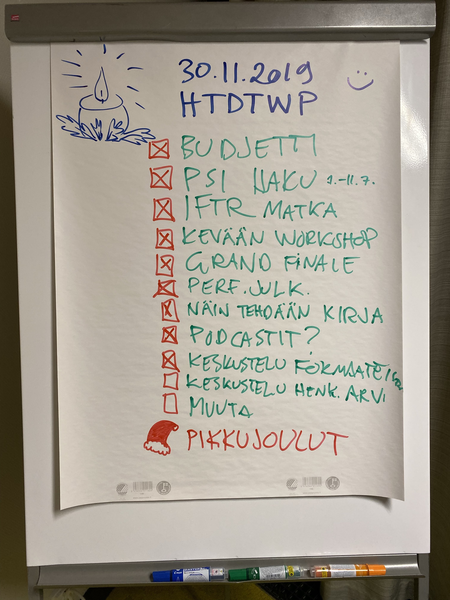 30.11.2019
HTDTWP
BUDJETTI
PSI HAKU 1.-11.7.
IFTR MATKA
KEVÄÄN WORKSHOP
GRAND FINALE
PERF. JULK.
NÄIN TEHDÄÄN KIRJA
PODCASTIT?
KESKUSTELU
KESKUSTELU HENK. ARVI
MUUTA
PIKKUJOULUT